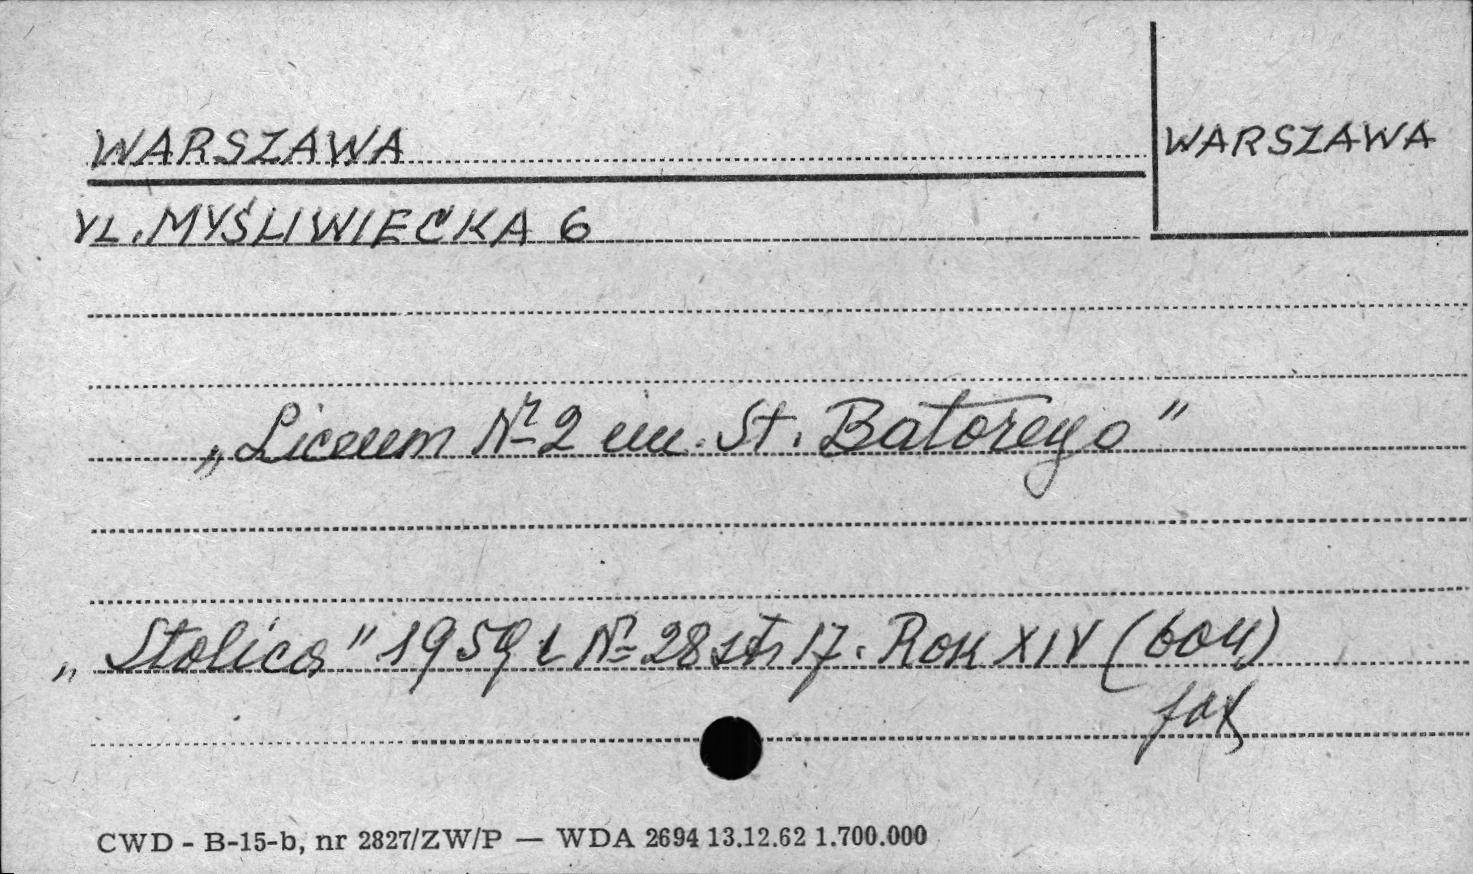 WARSZAWA
WARSZAWA
UL. MYŚLIWIECKA 6
„Liceum Nr 2 im. St. Batorego”
„Stolica” 1959 r Nr 28 str 17. Rok XIV (604)
CWD - B-15-b, nr 2827/ZW/P — WDA 2694 13.12.62 1.700.000